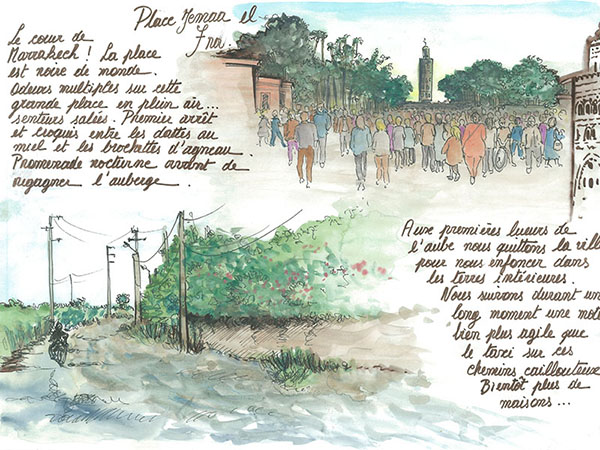 Place Jemaa el
Fna
Le cœur de
Marrakech ! La place
est noire de monde.
Odeurs multiples sur cette
grande place en plein air...
senteurs salées. Premier arrêt
et croquis entre les dattes au
miel et les brochettes d'agneau.
Promenade nocturne avant de
regagner l'auberge.
Aux premières lueurs de
l'aube nous quittons la vill
pour nous enfoncer dans
les terres intérieures.
Nous suivons durant un
long moment une mot
bien plus agile que
le taxi sur ces
chemins caillouteux
Bientôt plus de
maisons...